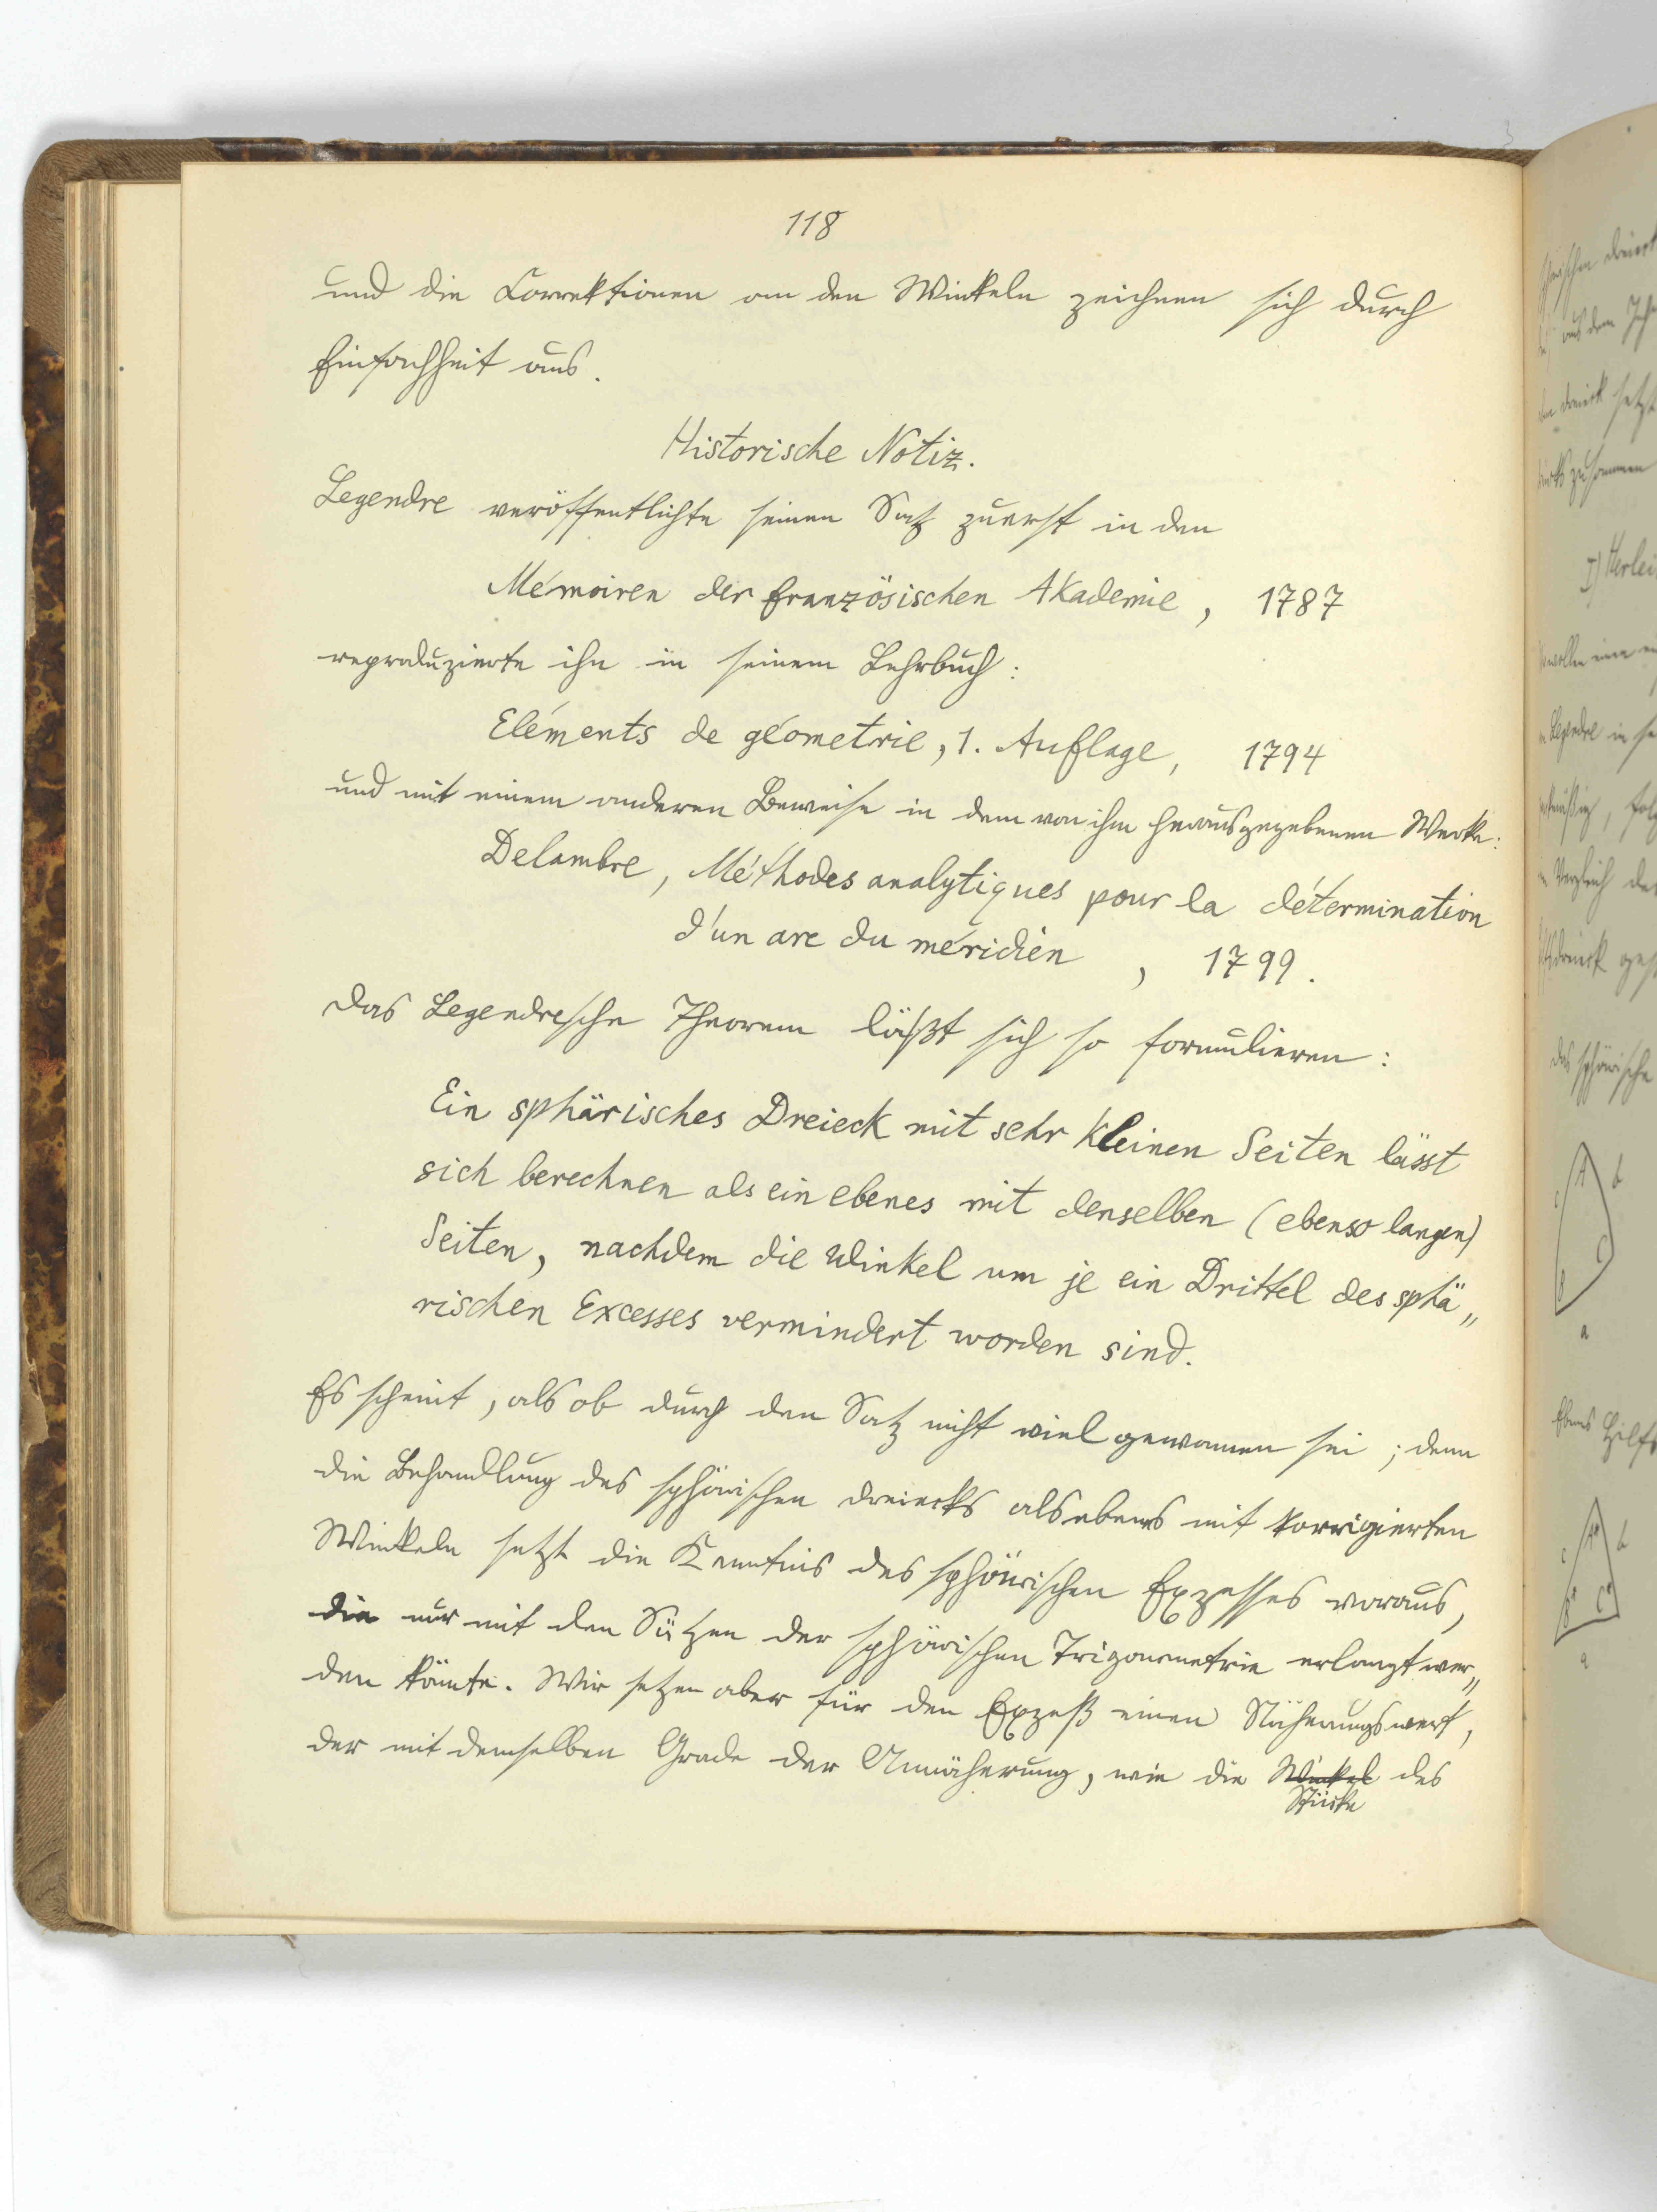 118
und die Correktionen an den Winkeln zeichnen sich durch
Einfachheit aus.
Historische Notiz.
Legendre veröffentlichte seinen Satz zuerst in den
Mémoiren der französischen Akademie, 1787
reproduzierte ihn in seinem Lehrbuch:
Eléments de géometrie, 1. Auflage, 1794
und mit einem anderen Beweise in dem von ihm herausgegebenen Werke:
Delambre, Méthodes analytiques pour la détermination
d'un arc du méridien, 1799.
Das Legendresche Theorem läßt sich so formulieren:
Ein sphärisches Dreieck mit sehr kleinen Seiten lässt
sich berechnen als ein ebenes mit denselben (ebenso langen)
Seiten, nachdem die Winkel um je ein Drittel des sphä„
rischen Excesses vermindert worden sind.
Es scheint, als ob durch den Satz nicht viel gewonnen sei; denn
die Behandlung des sphärischen Dreiecks als ebenes mit korrigierten
Winkeln setzt die Kenntnis des sphärischen Exzesses voraus,
die nur mit den Sätzen der sphärischen Trigonometrie erlangt wer„
den könnte. Wir setzen aber für den Exzeß einen Näherungswert,
der mit demselben Grade der Annäherung, wie die Winkel des
Stücke